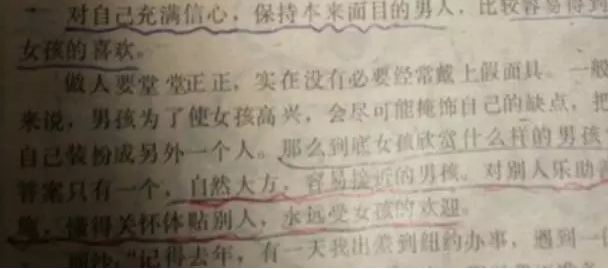 对自己充满信心，保持本来面目的男人，比较容易得到
女孩的喜欢。
做人要堂堂正正，实在没有必要经常戴上假面具。一般
来说，男孩为了使女孩高兴，会尽可能掩饰自己的缺点，把
自己装扮成另外一个人。那么到底女孩欣赏什么样的男孩
答案只有一个，自然大方，容易接近的男孩。对别人乐助
施，懂得关怀体贴别人，永远受女孩的欢迎。
“记得去年，有一天我出差到纽约办事，遇到一